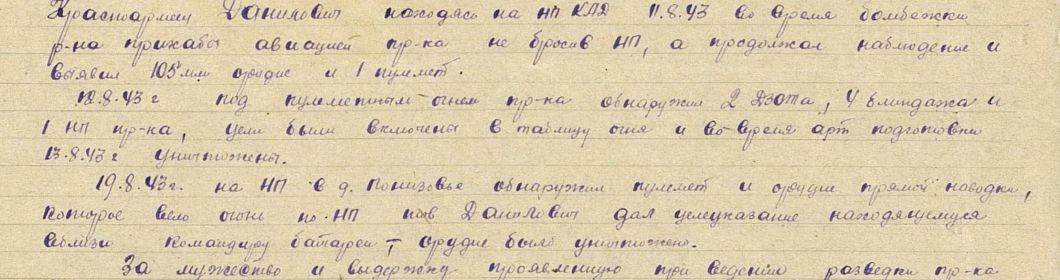 Красноармеец Данилович находясь на НП КАД 11.8.43 во время бомбежки
р-на прихабы авиацией пр-ка не бросив НП, а продолжал наблюдение и
выявил 105 мм орудие и 1 пулемет.
12.8.43 г под пулеметным огнем пр-ка обнаружил 2 ДЗОТа, 4 блиндажа и
1 НП пр-ка, цели были включены в таблицу огня и во время арт подготовки
13.8.43 г уничтожены.
19.8.43 г. на НП в д. Понизовье обнаружил пулемет и орудие прямой наводки,
которое вело огонь по НП тов Данилович дал целеуказание находящемуся
вблизи командиру батареи, орудие было уничтожено.
За мужество и выдержку проявленную при ведении разведки пр-ка